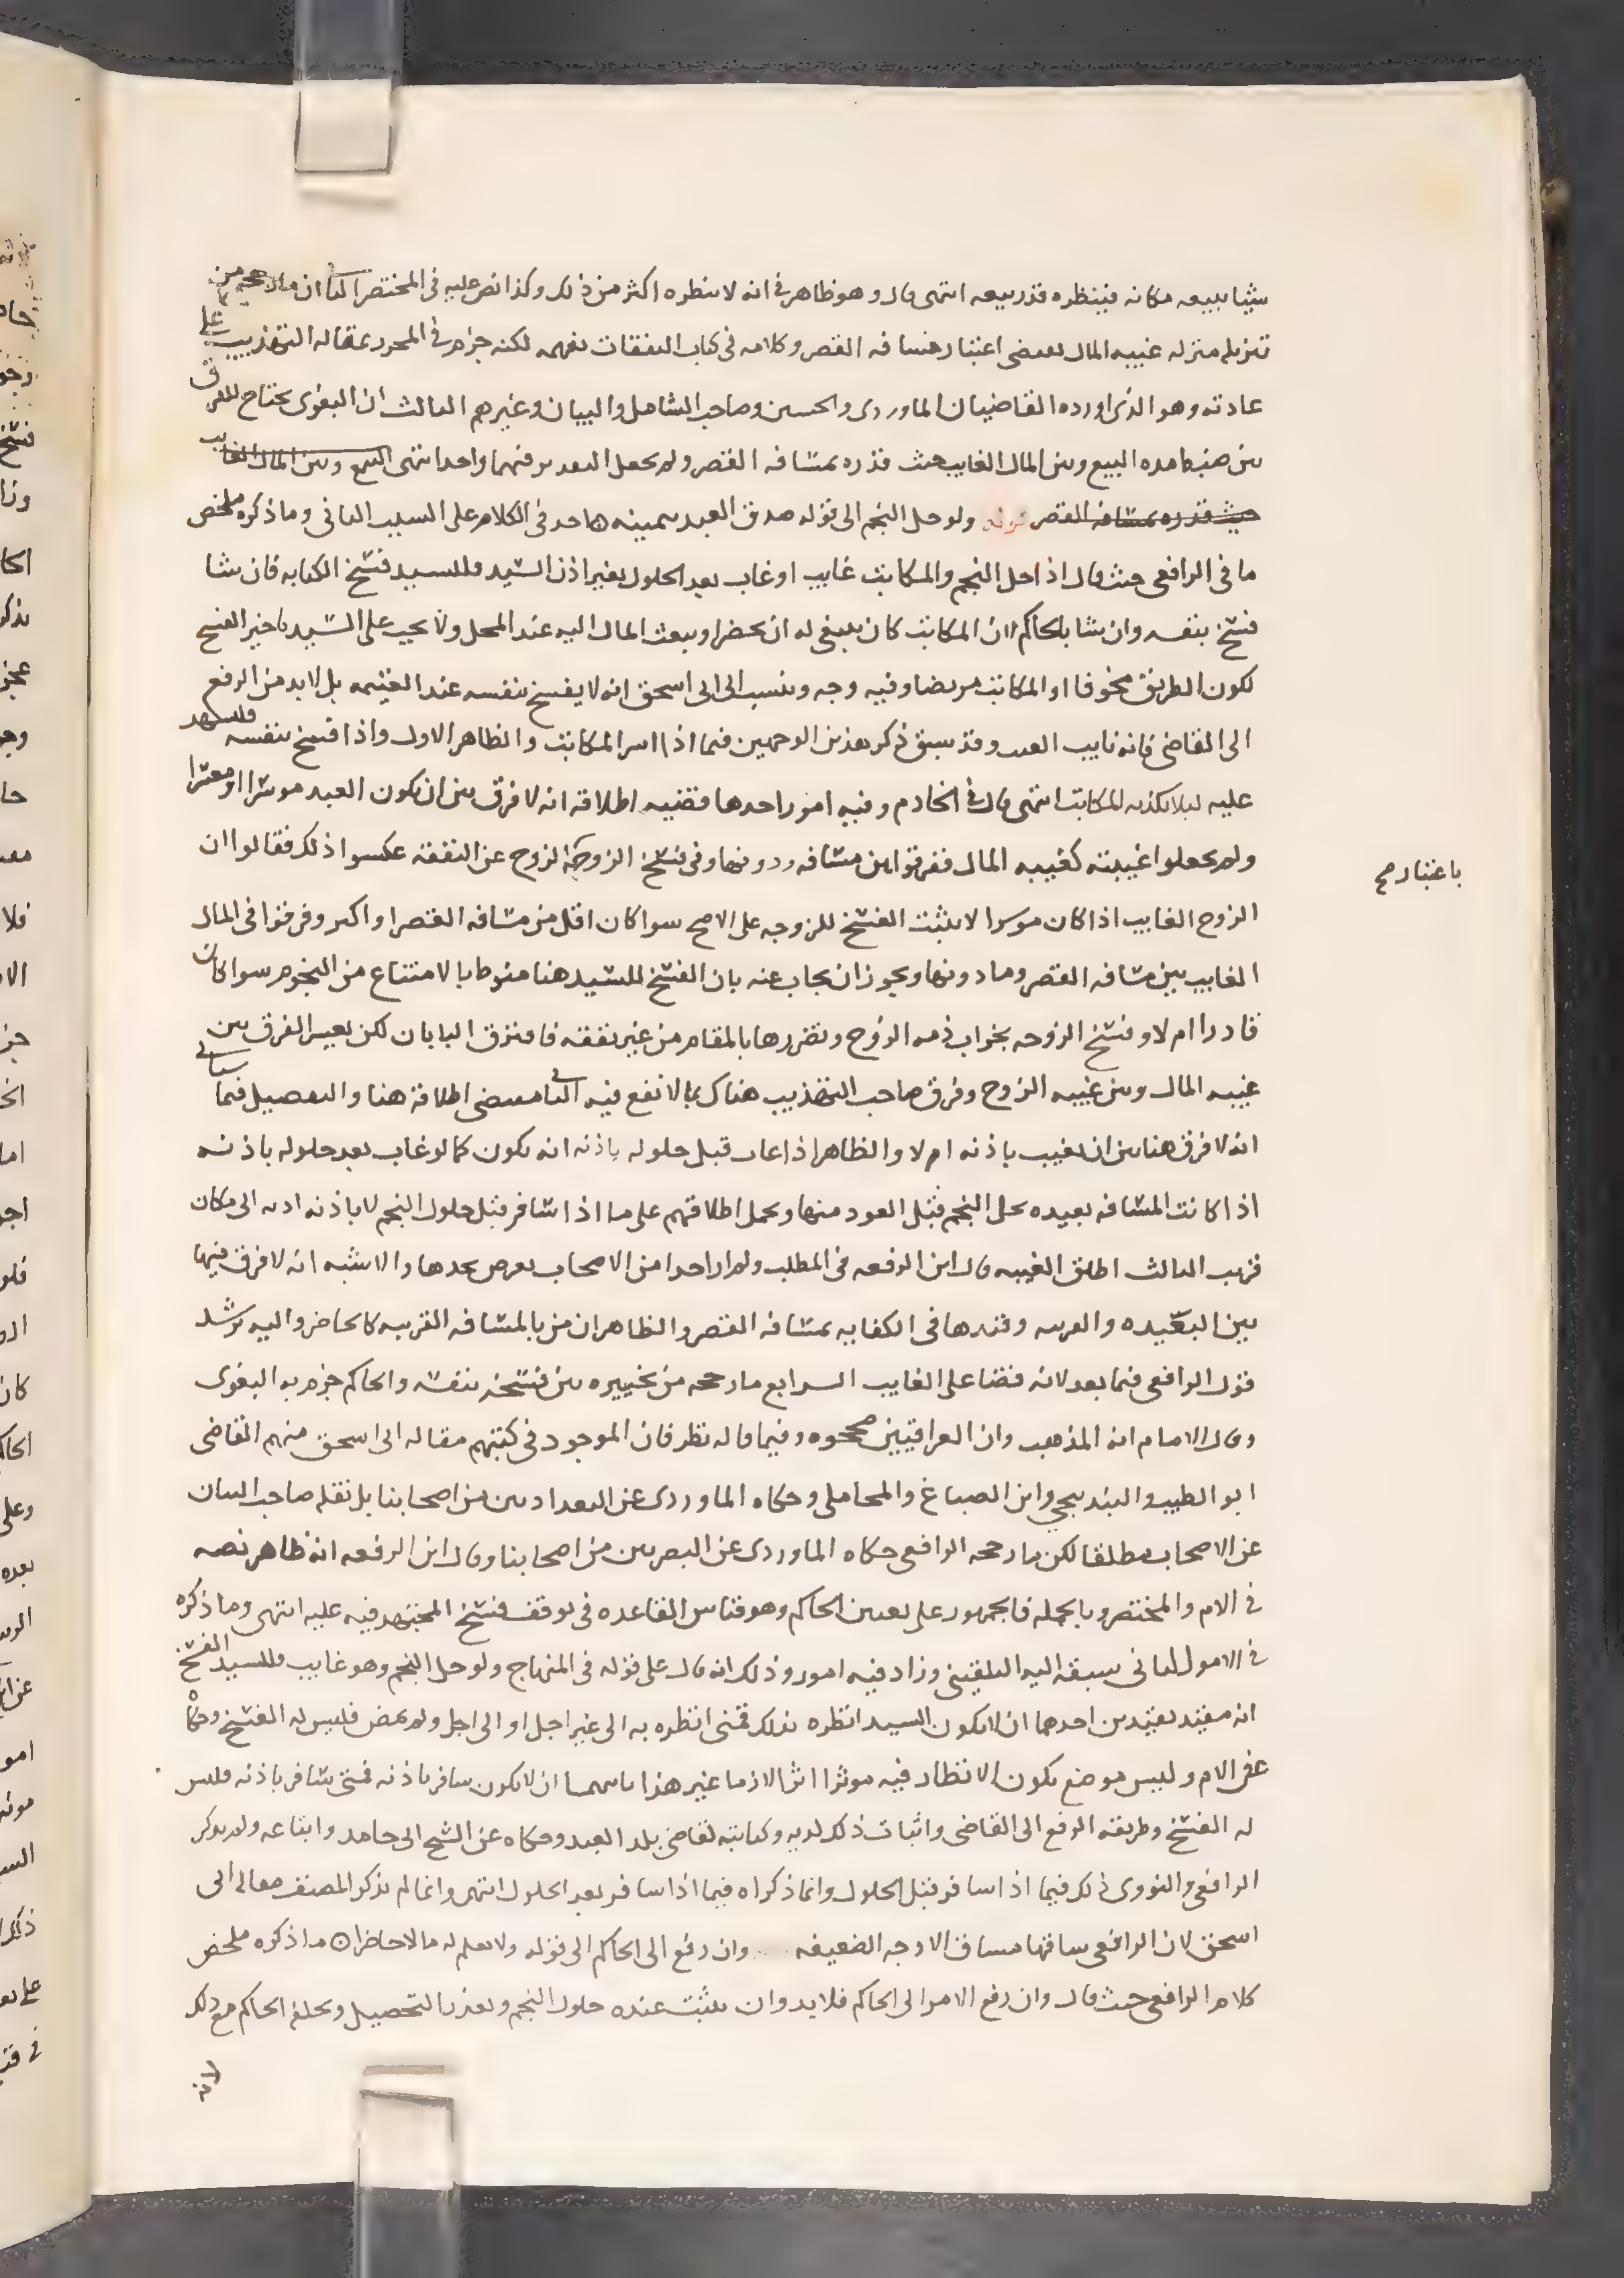 شيئا يبيعه مكانه فينظره قدر بيعه انتهى قال وهو ظاهر في انه لا ينظره اكثر من ذلك وكذا نص عليه في المختصر الثاني ان ما رجحه من
تنزيله منزله غيبه المال يقتضي اعتبار مسافه القصر وكلامه في كتاب النفقات يفهمه لكنه جزم في المحرر بمقاله التهذيب على
عادته وهو الذي اورده القاضيان الماوردي والحسين وصاحب الشامل والبيان وغيرهم الثالث ان البغوي يحتاج للفرق
بين ضبط مده البيع وبين المال الغايب حيث قدره بمسافه القصر ولم يجعل البعد بو فيهما واحدا انتهى البيع وبين المال الغايب
حيث قدره بمسافه القصر قوله ولو حل النجم الى قوله صدق العبد بيمينه هاحد في الكلام على السبب الثاني وما ذكره ملخص
ما في الرافعي حيث قال اذا حل النجم والمكاتب غايب او غاب بعد الحلول بغير اذن السيد فللسيد فسخ الكتابه فان شا
فسخ بنفسه وان شا بالحاكم لان المكاتب كان ينبغي له ان يحضر او يبعث المال اليه عند المحل ولا يجب على السيد تاخير الفسخ
لكون الطريق مخوفا او المكاتب مريضا وفيه وجه وينسب الى ابي اسحق انه لا يفسخ بنفسه عند الغيبه بل لا بد من الرفع
الى القاضي فانه نايب العبد وقد سبق ذكر هذين الوجهين فيما اذا اسر المكاتب والظاهر الاول واذا فسخ بنفسه فليشهد
عليه ليلا يكذبه المكاتب انتهى قال في الخادم وفيه امور احدها قضيه اطلاقه انه لا فرق بين ان يكون العبد موسرا او معسرا
ولم يجعلوا غيبته كغيبه المال ففرقوا بين مسافه ودونها وفي فسخ الزوجه الزوج عن النفقه عكسوا ذلك فقالوا ان
الزوج الغايب اذا كان موسرا لا يثبت الفسخ للزوجه على الاصح سوا كان اقل من مسافه القصر او اكبر وفرقوا في المال
الغايب بين مسافه القصر وما دونها ويجوز ان يجاب عنه بان الفسخ للسيد هنا منوط بالامتناع من النجوم سوا كان
قادرا ام لا وفسخ الزوجه بخراب ذمه الزوج وتضررها بالمقام من غير نفقه فافترق البابان لكن يعسر الفرق بين
غيبه المال وبين غيبه الزوج وفرق صاحب التهذيب هناك بما لا نفع فيه الثاني مقتضى اطلاقه هنا والتفصيل فيما سياتي
انه لا فرق هنا بين ان يغيب باذنه ام لا والظاهر اذا غاب قبل حلوله باذنه انه يكون كما لو غاب بعد حلوله باذنه
اذا كانت المسافه بعيده يحل النجم قبل العود منها ويحمل اطلاقهم على ما اذا سافر قبل حلول النجم لا باذنه او به الى مكان
قريب الثالث اطلق الغيبه قال ابن الرفعه في المطلب ولم ار احدا من الاصحاب تعرض لحدها والاشبه انه لا فرق فيها
بين البعيده والقريبه وقيدها في الكفايه بمسافه القصر والظاهر ان من بالمسافه القريبه كالحاضر واليه يرشد
قول الرافعي فيما بعد لانه قضا على الغايب الرابع ما رجحه من تخييره بين فسخه بنفسه والحاكم جزم به البغوي
وقال الامام انه المذهب وان العراقيين صححوه وفيما قاله نظر فان الموجود في كتبهم مقاله ابي اسحق منهم القاضي
ابو الطيب والبندنيجي وابن الصباغ والمحاملي وحكاه الماوردي عن البغداديين من اصحابنا بل نقله صاحب البيان
عن الاصحاب مطلقا لكن ما رجحه الرافعي حكاه الماوردي عن البصريين من اصحابنا وقال ابن الرفعه انه ظاهر نصه
في الام والمختصر وبالجمله فالجمهور على تعيين الحاكم وهو قياس القاعده في توقف فسخ المجتهد فيه عليه انتهى وما ذكره
في الامر الثاني سبقه اليه البلقيني وزاد فيه امور وذلك انه قال على قوله في المنهاج ولو حل النجم وهو غايب فللسيد الفسخ
انه مقيد بقيدين احدهما ان لا يكون السيد انظره بذلك فمتى انظره به الى غير اجل او الى اجل ولم يمض فليس له الفسخ وحكاه
عن الام وليس موضع يكون الانظار فيه موثرا اثرا لازما غير هذا ثانيهما ان لا يكون سافر باذنه فمتى سافر باذنه فليس
له الفسخ وطريقه الرفع الى القاضي واثبات ذلك لديه وكتابته لقاضي بلد العبد وحكاه عن الشيخ ابي حامد واتباعه ولم يذكر
الرافعي والنووي ذلك فيما اذا سافر قبل الحلول وانما ذكراه فيما اذا سافر بعد الحلول انتهى وانما لم يذكر المصنف مقاله ابي
اسحق لان الرافعي ساقها مساق الاوجه الضعيفه وان رفع الى الحاكم الى قوله ولا يعلم له مالا حاضرا ما ذكره ملخص
كلام الرافعي حيث قال وان رفع الامر الى الحاكم فلا بد وان يثبت عنده حلول النجم وتعذر التحصيل ويحلفه الحاكم مع ذلك
لانه
باعتبار صح